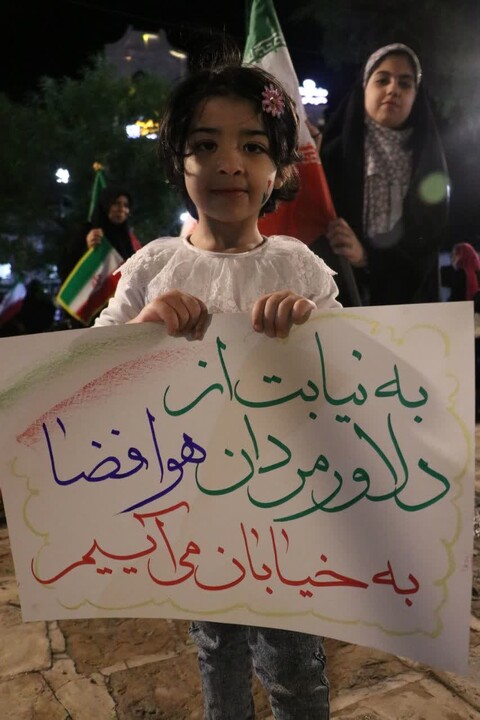 به نیابت از
دلاور مردان هوا فضا
به خیابان می آییم